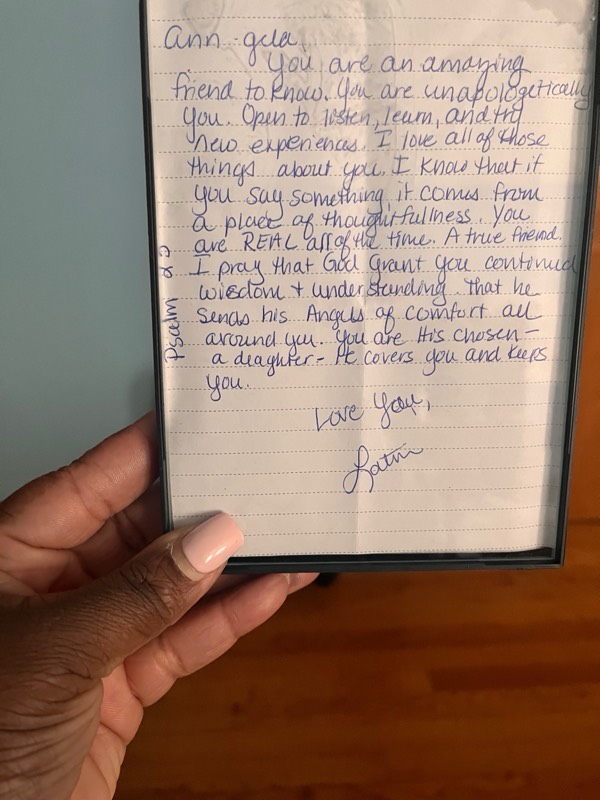 Ann-gela,
You are an amazing
friend to know. You are unapologetically
you. Open to listen, learn, and try
new experiences. I love all of those
things about you. I know that if
you say something, it comes from
a place of thoughtfullness. You
are REAL all of the time. A true friend.
I pray that God grant you continued
wisdom + understanding. that he
sends his Angels of comfort all
around you. You are His chosen-
a deaghter- He covers you and keeps
you.
Love You,
Psalm 23